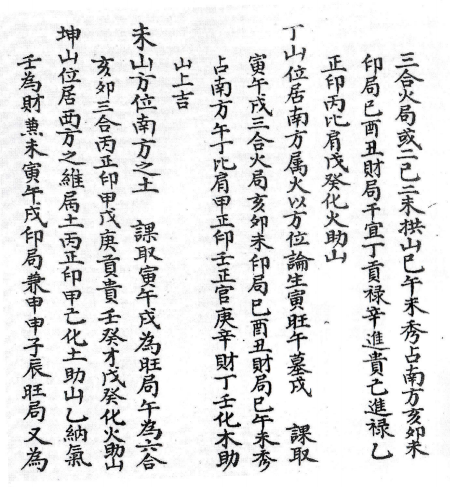 三合火局或二己二未拱山巳午未秀占南方亥卯未
印局巳酉丑財局干宜丁貢祿辛進貴己進祿乙
正印丙比肩戊癸化火助山
丁山位居南方属火以方位論生寅旺午墓戌　課取
寅午戌三合火局亥卯未印局巳酉丑財局巳午未秀
占南方午丁比肩甲正印壬正官庚辛財丁壬化木助
山上吉
未山方位南方之土　課取寅午戌為旺局午為六合
亥卯三合丙正印甲戊庚貢貴壬癸才戊癸化火助山
坤山位居西方之維属土丙正印甲己化土助山乙納氣
壬為財兼未寅午戌印局兼申申子辰旺局又為